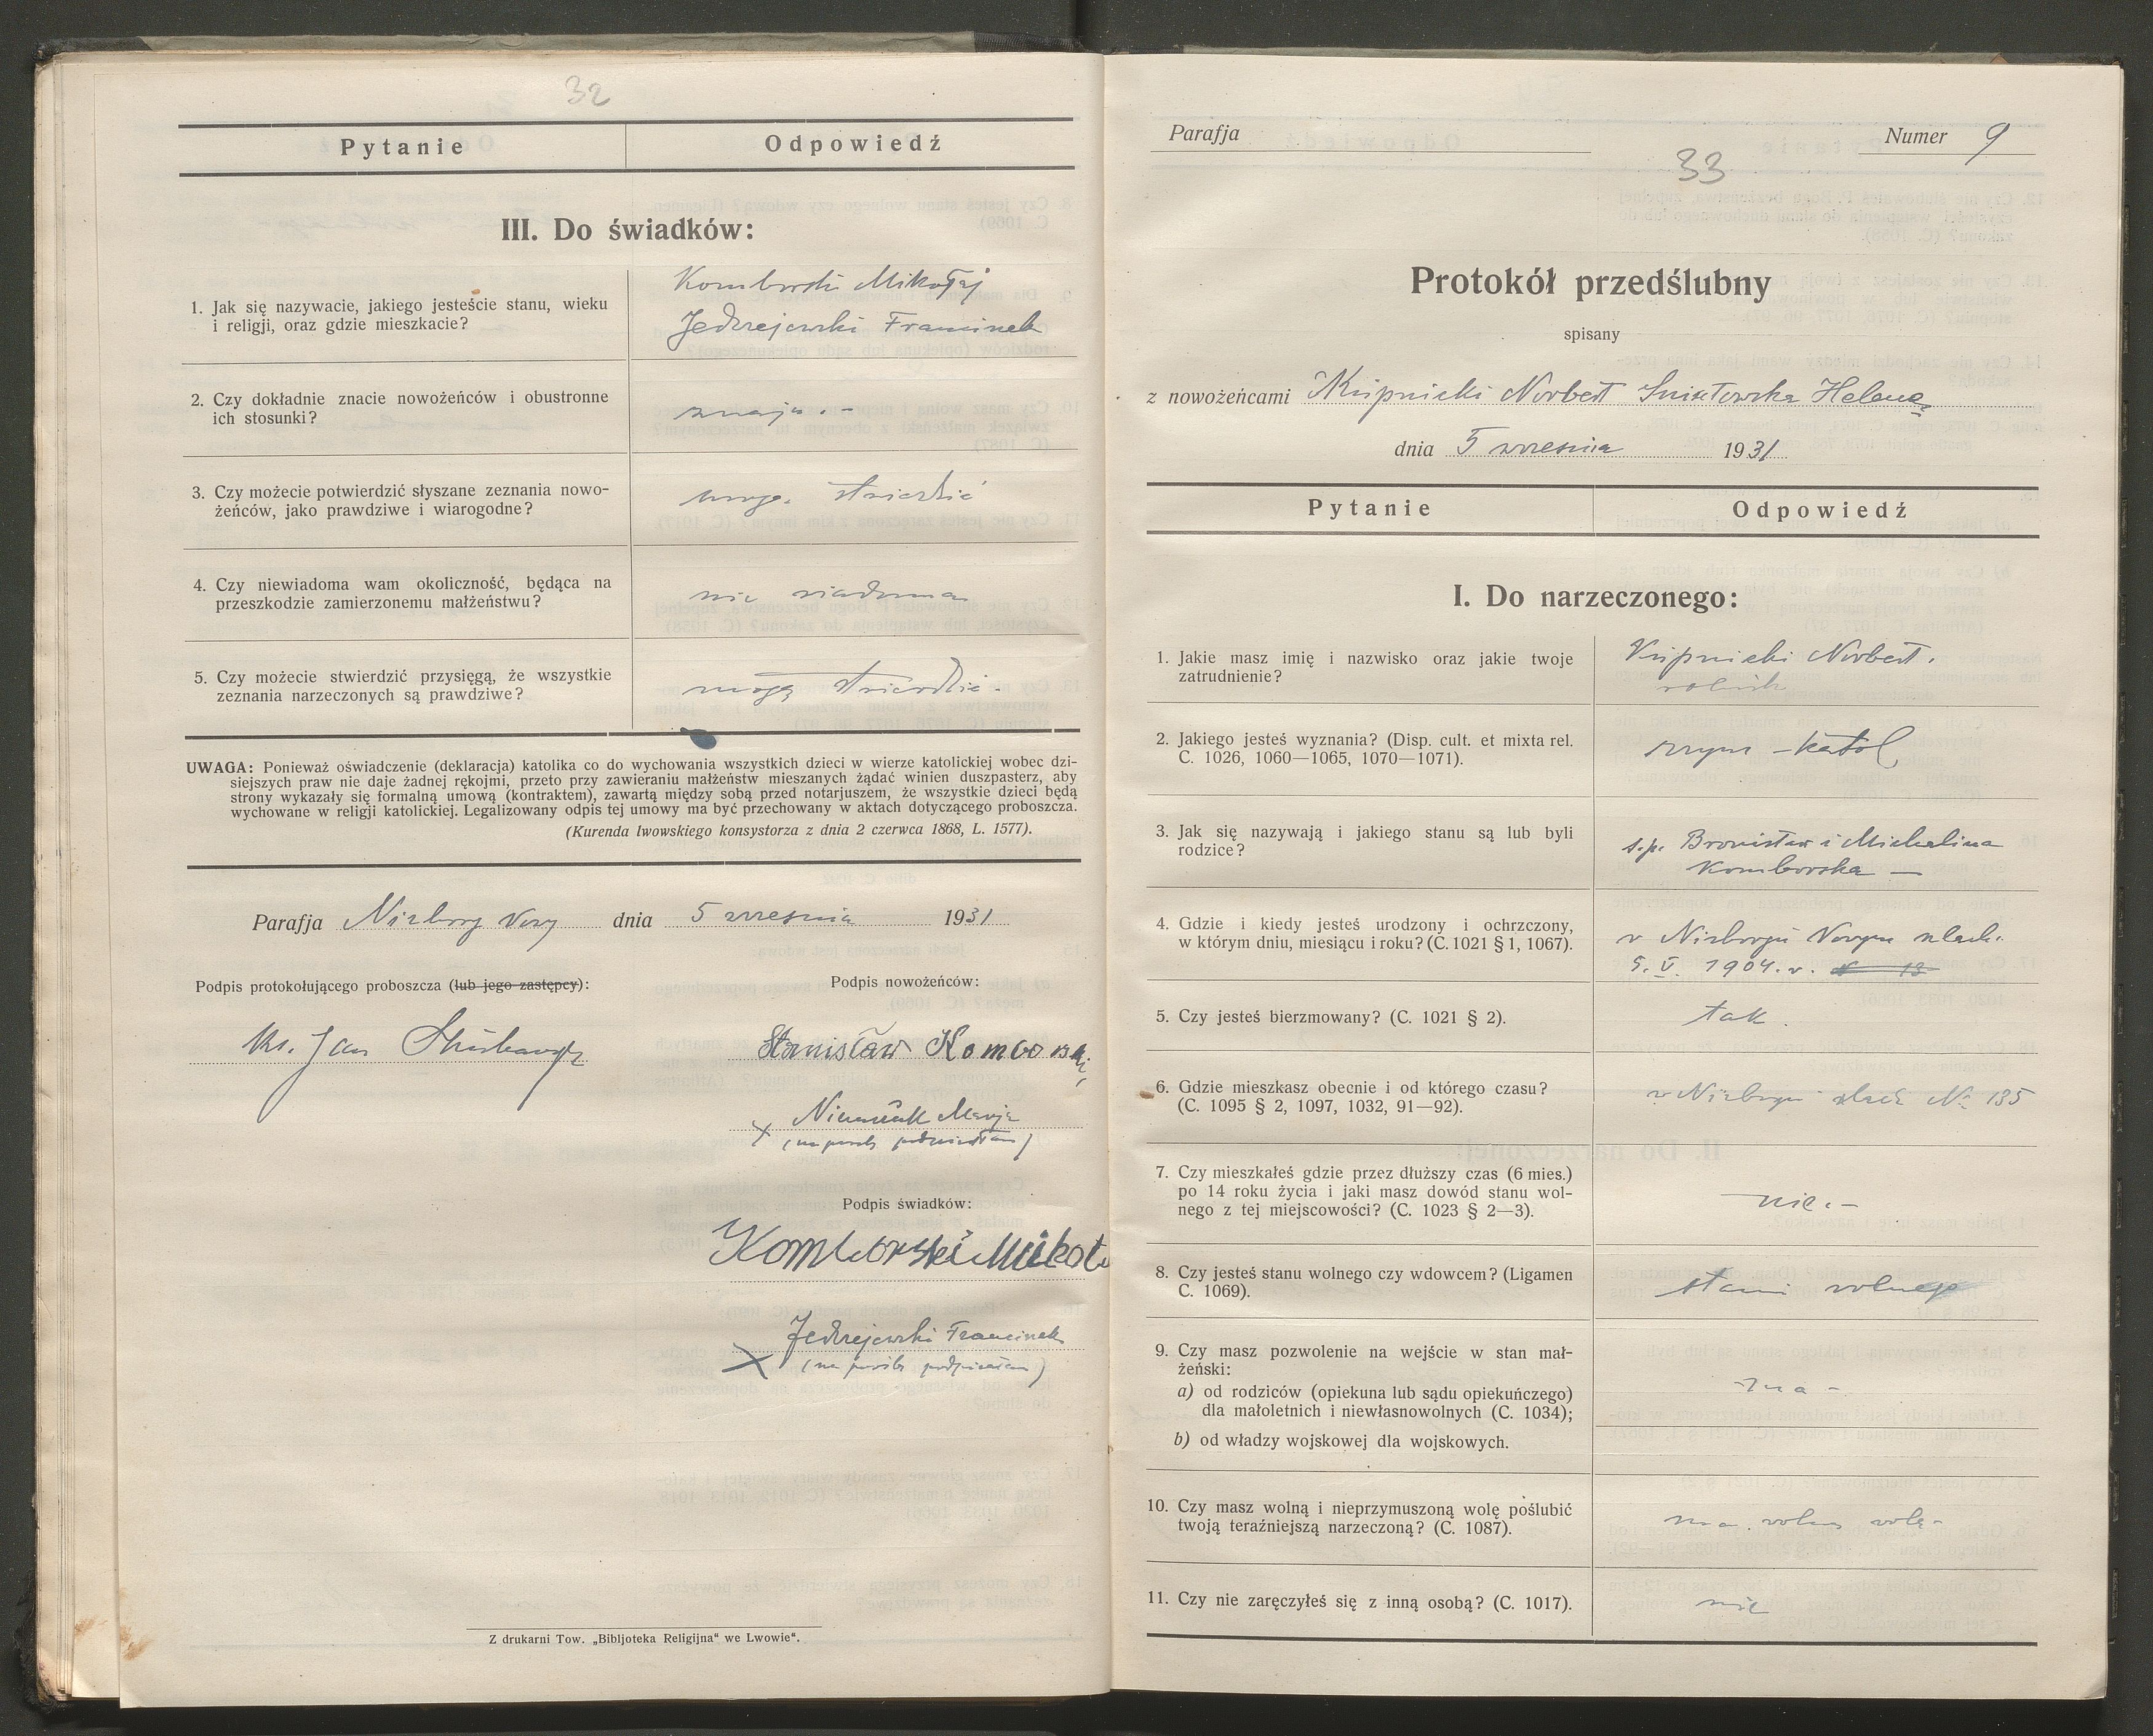 32
Pytanie
Odpowiedź
III. Do świadków:
1. Jak się nazywacie, jakiego jesteście stanu, wieku
i religji, oraz gdzie mieszkacie?
Komborski Mikołaj
Jedrzejewski Franciszek
2. Czy dokładnie znacie nowożeńców i obustronne
ich stosunki?
znają.-
3. Czy możecie potwierdzić słyszane zeznania nowo-
żeńców, jako prawdziwe i wiarogodne?
mogą stwierdzić
4. Czy niewiadoma wam okoliczność, będąca na
przeszkodzie zamierzonemu małżeństwu?
nie wiadoma
5. Czy możecie stwierdzić przysięgą, że wszystkie
zeznania narzeczonych są prawdziwe?
mogą stwierdzić.
UWAGA: Ponieważ oświadczenie (deklaracja) katolika co do wychowania wszystkich dzieci w wierze katolickiej wobec dzi-
siejszych praw nie daje żadnej rękojmi, przeto przy zawieraniu małżeństw mieszanych żądać winien duszpasterz, aby
strony wykazały się formalną umową (kontraktem), zawartą między sobą przed notarjuszem, że wszystkie dzieci będą
wychowane w religji katolickiej. Legalizowany odpis tej umowy ma być przechowany w aktach dotyczącego proboszcza.
(Kurenda lwowskiego konsystorza z dnia 2 czerwca 1868, L. 1577).
Parafja Niżborg Nowy dnia 5 września 1931
Podpis protokołującego proboszcza (lub jego zastępcy):
Ks. Jan
Podpis nowożeńców:
Stanisław Komborski
Marja
x (na prośbę podpisałam)
Podpis świadków:
Komborski Mikoła
Jedrzejewski Franciszek
x (na prośbę podpisałam)
Z drukarni Tow. „Bibljoteka Religijna“ we Lwowie“.
Parafja
Numer 9
33
Protokół przedślubny
spisany
z nowożeńcami Krupnicki Norbert Helena
dnia 5 września 1931
Pytanie
Odpowiedź
I. Do narzeczonego:
1. Jakie masz imię i nazwisko oraz jakie twoje
zatrudnienie?
Krupnicki Norbert.
rolnik
2. Jakiego jesteś wyznania? (Disp. cult. et mixta rel.
C. 1026, 1060—1065, 1070—1071).
rzym - katol
3. Jak się nazywają i jakiego stanu są lub byli
rodzice?
ś.p. Bronisław i Michalina
Komborska —
4. Gdzie i kiedy jesteś urodzony i ochrzczony,
w którym dniu, miesiącu i roku? (C. 1021 § 1, 1067).
w Niżborgu Nowym szlach.
5. V. 1904. r.
5. Czy jesteś bierzmowany? (C. 1021 § 2).
tak.
6. Gdzie mieszkasz obecnie i od którego czasu?
(C. 1095 § 2, 1097, 1032, 91—92).
w Niżborgu szlach No 135
7. Czy mieszkałeś gdzie przez dłuższy czas (6 mies.)
po 14 roku życia i jaki masz dowód stanu wol-
nego z tej miejscowości? (C. 1023 § 2—3).
nie.-
8. Czy jesteś stanu wolnego czy wdowcem? (Ligamen
C. 1069).
stanu wolnego
9. Czy masz pozwolenie na wejście w stan mał-
żeński:
a) od rodziców (opiekuna lub sądu opiekuńczego)
dla małoletnich i niewłasnowolnych (C. 1034);
- ma -
b) od władzy wojskowej dla wojskowych.
10. Czy masz wolną i nieprzymuszoną wolę poślubić
twoją teraźniejszą narzeczoną? (C. 1087).
ma wolną wolę-
11. Czy nie zaręczyłeś się z inną osobą? (C. 1017).
nie